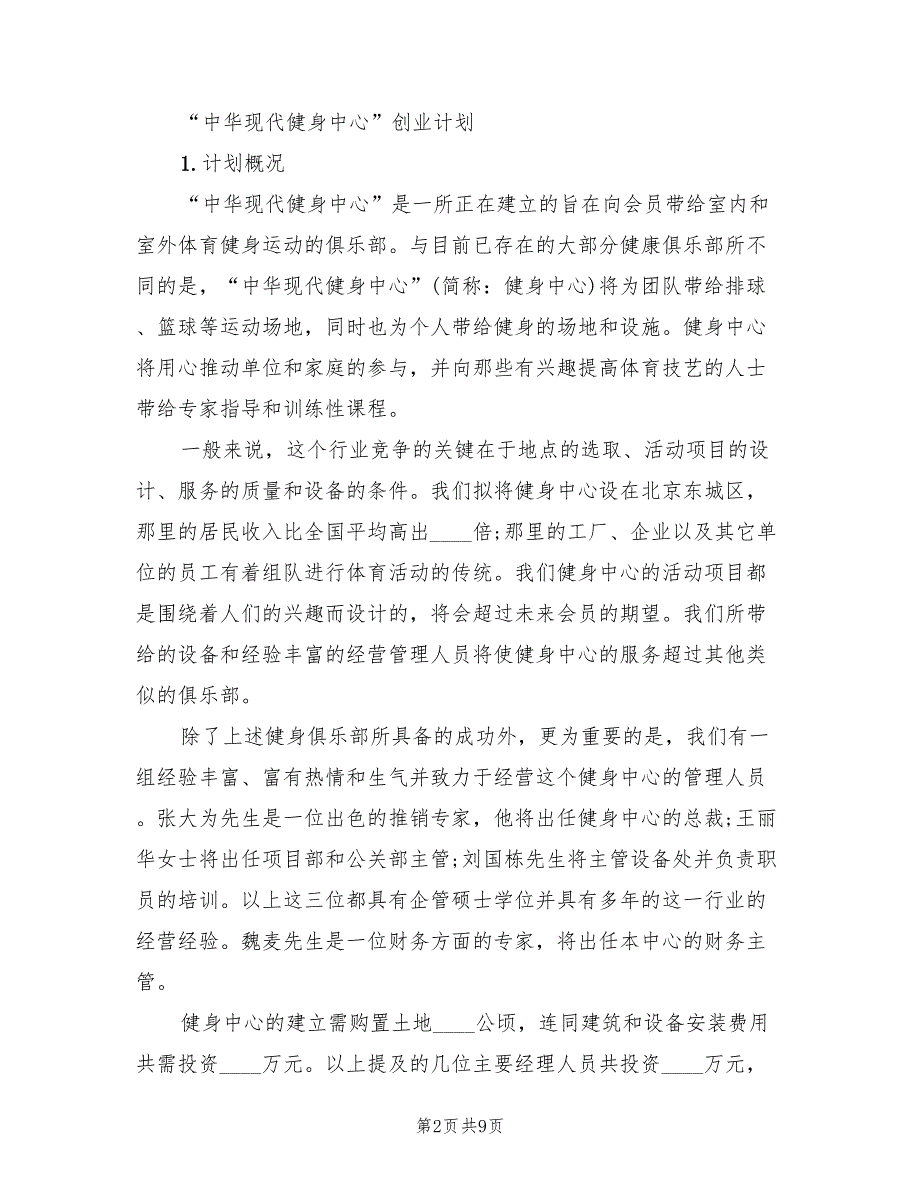 “中华现代健身中心”创业计划
1.计划概况
“中华现代健身中心”是一所正在建立的旨在向会员带给室内和
室外体育健身运动的俱乐部。与目前已存在的大部分健康俱乐部所不
同的是，“中华现代健身中心”(简称：健身中心)将为团队带给排球
、篮球等运动场地，同时也为个人带给健身的场地和设施。健身中心
将用心推动单位和家庭的参与，并向那些有兴趣提高体育技艺的人士
带给专家指导和训练性课程。
一般来说，这个行业竞争的关键在于地点的选取、活动项目的设
计、服务的质量和设备的条件。我们拟将健身中心设在北京东城区，
那里的居民收入比全国平均高出____倍;那里的工厂、企业以及其它单
位的员工有着组队进行体育活动的传统。我们健身中心的活动项目都
是围绕着人们的兴趣而设计的，将会超过未来会员的期望。我们所带
给的设备和经验丰富的经营管理人员将使健身中心的服务超过其他类
似的俱乐部。
除了上述健身俱乐部所具备的成功外，更为重要的是，我们有一
组经验丰富、富有热情和生气并致力于经营这个健身中心的管理人员
。张大为先生是一位出色的推销专家，他将出任健身中心的总裁;王丽
华女士将出任项目部和公关部主管;刘国栋先生将主管设备处并负责职
员的培训。以上这三位都具有企管硕士学位并具有多年的这一行业的
经营经验。魏麦先生是一位财务方面的专家，将出任本中心的财务主
管。
健身中心的建立需购置土地____公顷，连同建筑和设备安装费用
共需投资____万元。以上提及的几位主要经理人员共投资____万元，
第2页 共9页